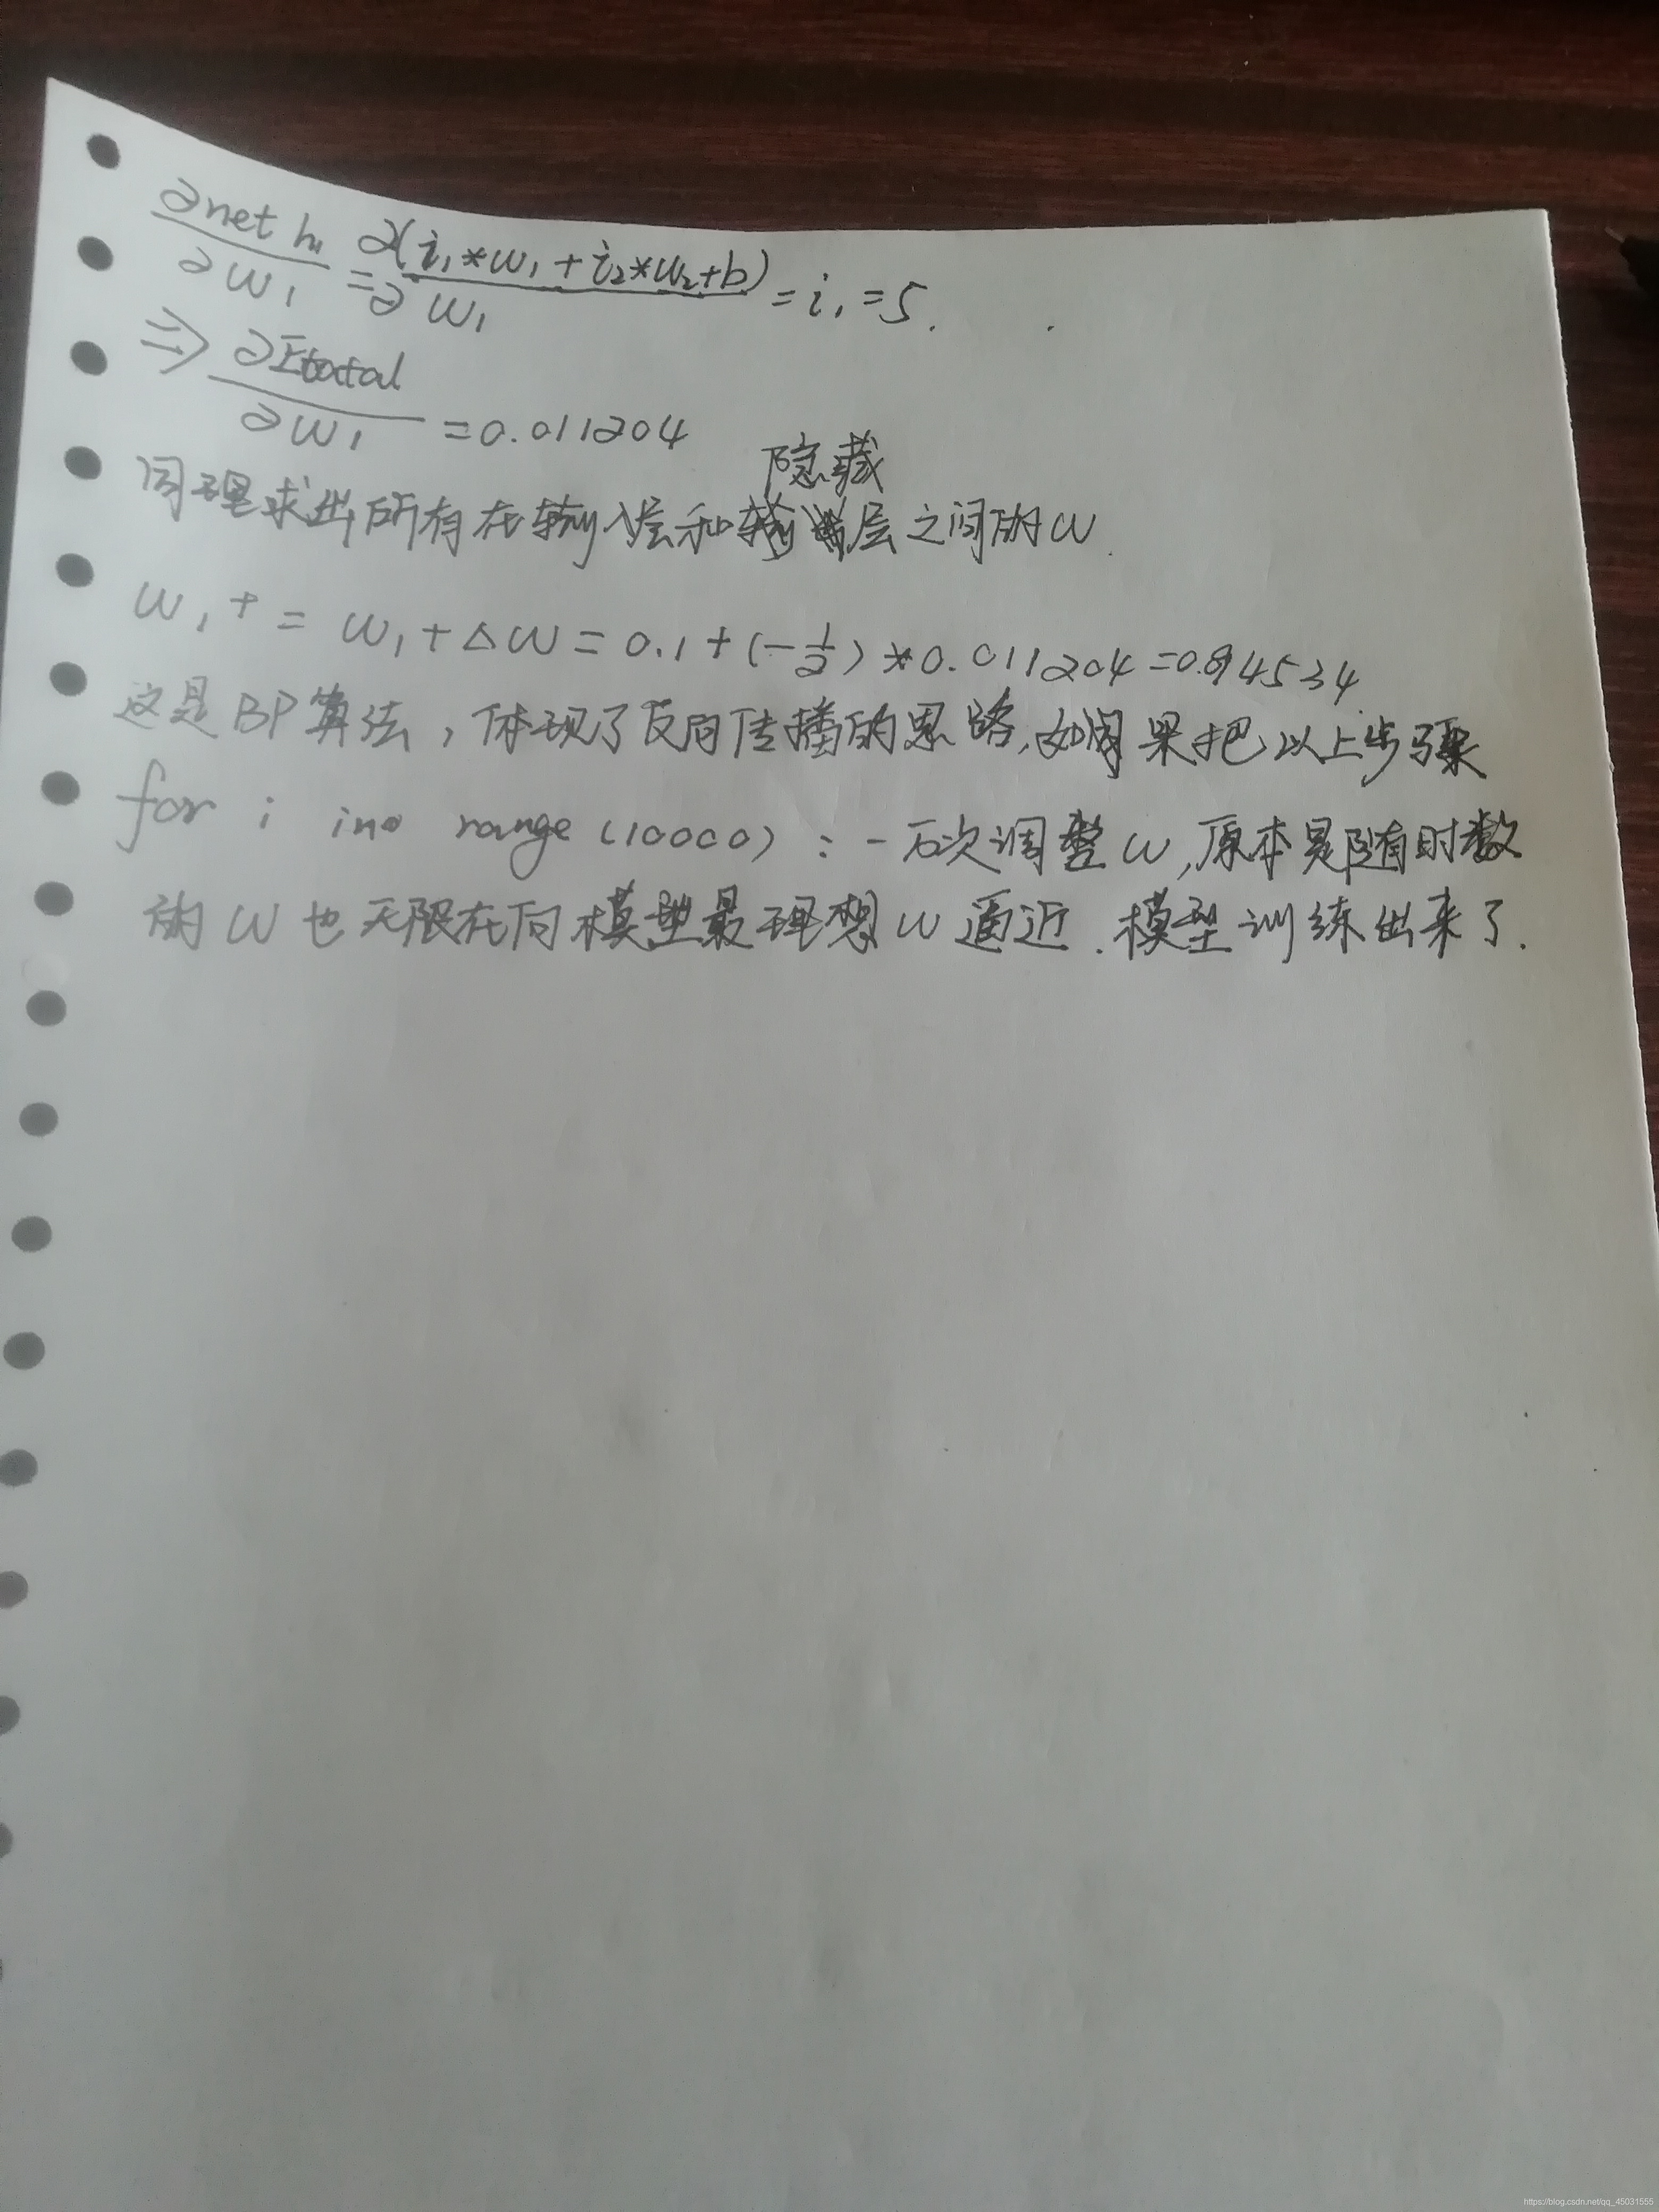 ∂net h₁/∂w₁ = ∂(i₁*w₁+i₂*w₂+b)/∂w₁ = i₁ = 5.
⇒ ∂Etotal/∂w₁ = 0.011204
隐藏
同理求出所有在输入层和层之间的w.
w₁⁺ = w₁+Δw = 0.1+(-1/2)*0.011204=0.94534
这是BP算法,体现了反向传播的思路,如果把以上步骤
for i in range(10000):一万次调整w,原本是随时数
的w也无限在向模型最理想w逼近.模型训练出来了.
https://blog.csdn.net/qq_45031555